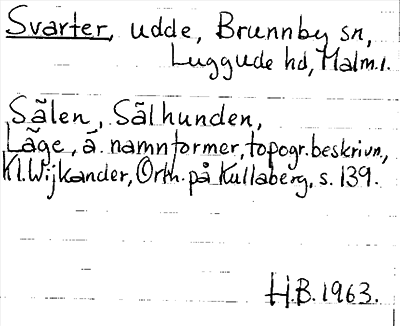 Svarter, udde, Brunnby sn,
Luggude hd, Malm.l.
Sälen, Sälhunden,
Läge, ä. namnformer, topogr. beskrivn.,
Kl. Wijkander, Ortn. på Kullaberg, s. 139.
H.B. 1963.